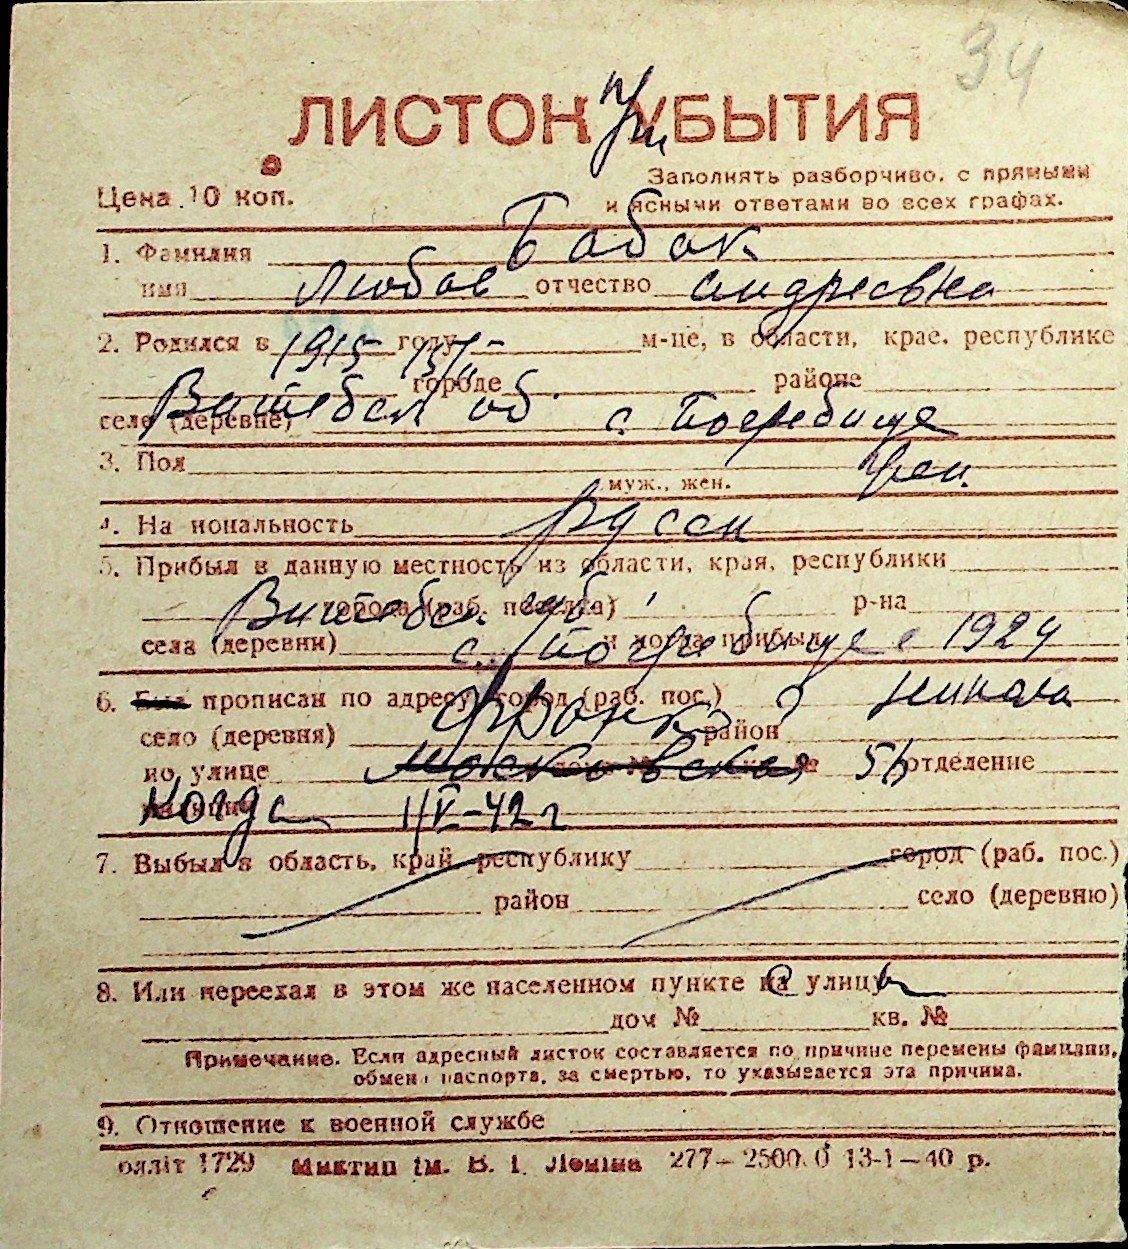 34
ЛИСТОК УБЫТИЯ
При
Цена 10 коп.
Заполнять разборчиво, с прямыми
и ясными ответами во всех графах.
1. Фамилия Бабак
имя Любов отчество Андреевна
2. Родился в 1915 году 15/II- м-це, в области, крае, республике
городе районе
Витебск об
село (деревне) с. Погребище
3. Пол жен.
муж., жен.
4. На иональность русск
5. Прибыл в данную местность из области, края, республики
Витебск. об города (раб. поселка) р-на
села (деревни) с. Погребище и когда прибыл с 1924
6. Был прописан по адресу: город (раб. пос.)
село (деревня) район
по улице Московская 56 отделение
Когда 1/V-42 г
7. Выбыл в область, край республику город (раб. пос.)
район село (деревню)
8. Или переехал в этом же населенном пункте на улицу
дом № кв. №
Примечание. Если адресный листок составляется по причине перемены фамилии,
обмен паспорта, за смертью, то указывается эта причина.
9. Отношение к военной службе
олліт 1729 Миктип ім. В. І. Леніна 277— 2500.0 13-1—40 р.